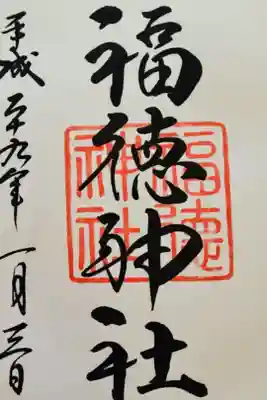 福徳神社
福徳
神社
平成二十九年一月三日